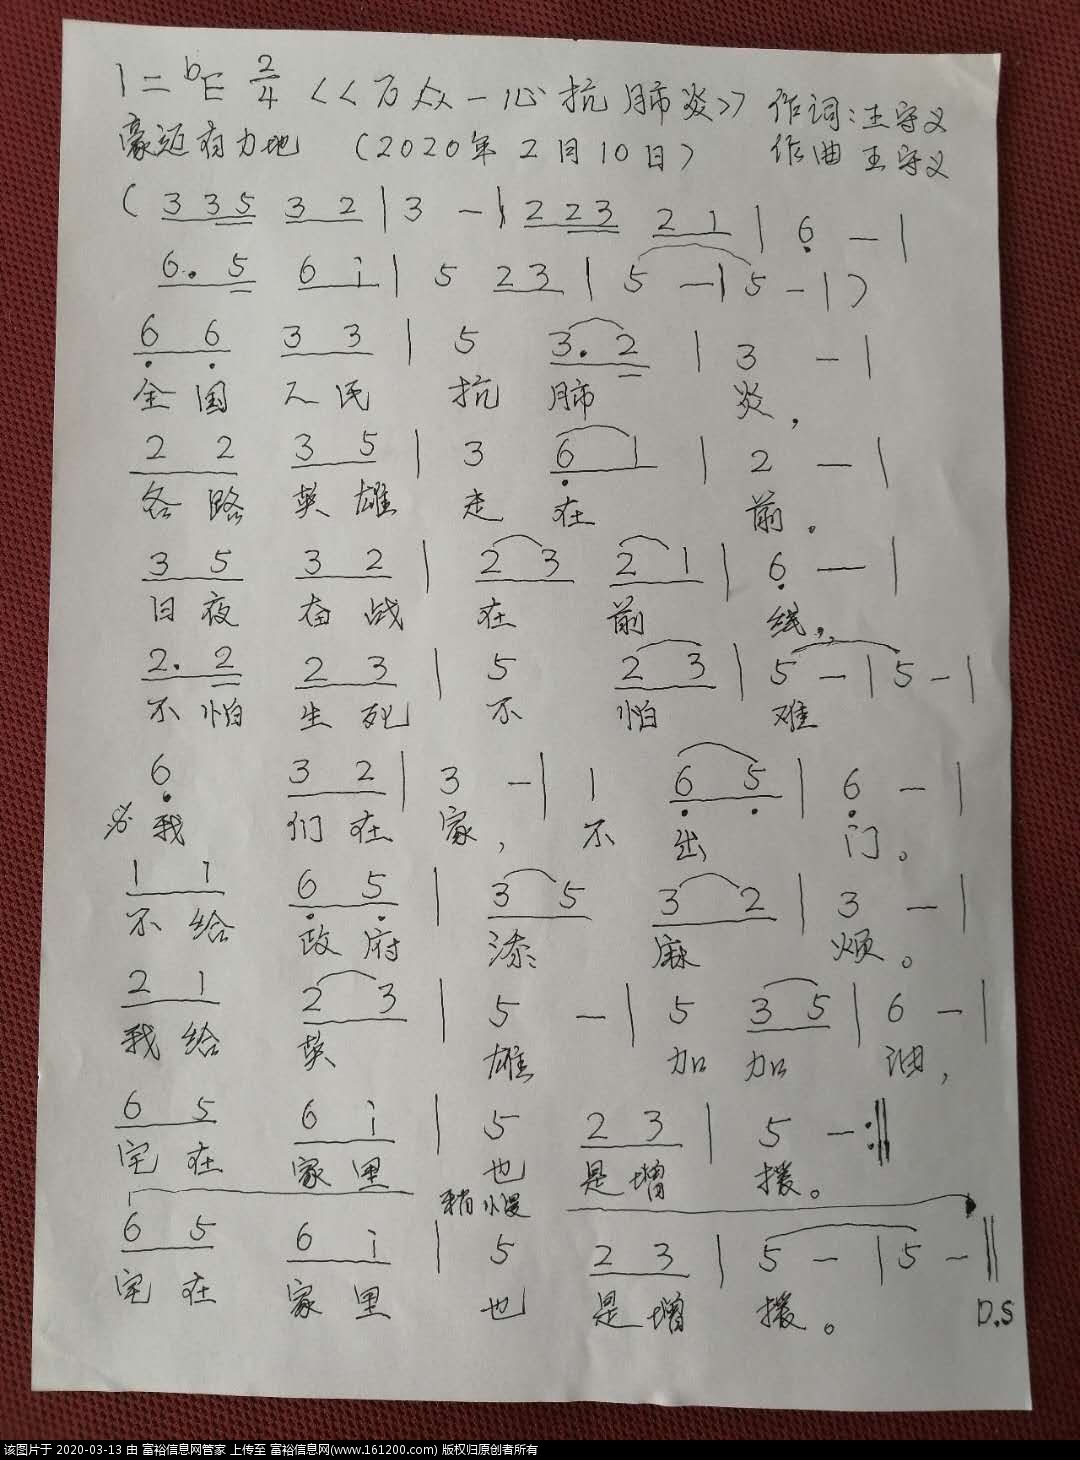 1=ᵇE 2/4 《万众一心抗肺炎》 作词:王守义
豪迈有力地 (2020年2月10日) 作曲 王守义
( 3 3 5 3 2 | 3 - | 2 2 3 2 1 | 6̣ - |
6. 5 6 i | 5 2 3 | 5 - | 5 - | )
6̣ 6̣ 3 3 | 5 3. 2 | 3 - |
全国 人民 抗 肺 炎,
2 2 3 5 | 3 6̣ 1 | 2 - |
各路 英雄 走 在 前。
3 5 3 2 | 2 3 2 1 | 6̣ - |
日夜 奋战 在 前 线,
2. 2 2 3 | 5 2 3 | 5 - | 5 - |
不怕 生死 不 怕 难
6̣ 3 2 | 3 - | 1 6̣ 5̣ | 6̣ - |
我 们在 家, 不 出 门。
1 1 6̣ 5̣ | 3 5 3 2 | 3 - |
不给 政府 添 麻 烦。
2 1 2 3 | 5 - | 5 3 5 | 6 - |
我给 英 雄 加 加 油,
6 5 6 i | 5 2 3 | 5 - :‖
宅在 家里 也 是增 援。
稍慢
6 5 6 i | 5 2 3 | 5 - | 5 - ‖
宅在 家里 也 是增 援。 D.S
该图片于 2020-03-13 由 富裕信息网管家 上传至 富裕信息网(www.161200.com) 版权归原创者所有